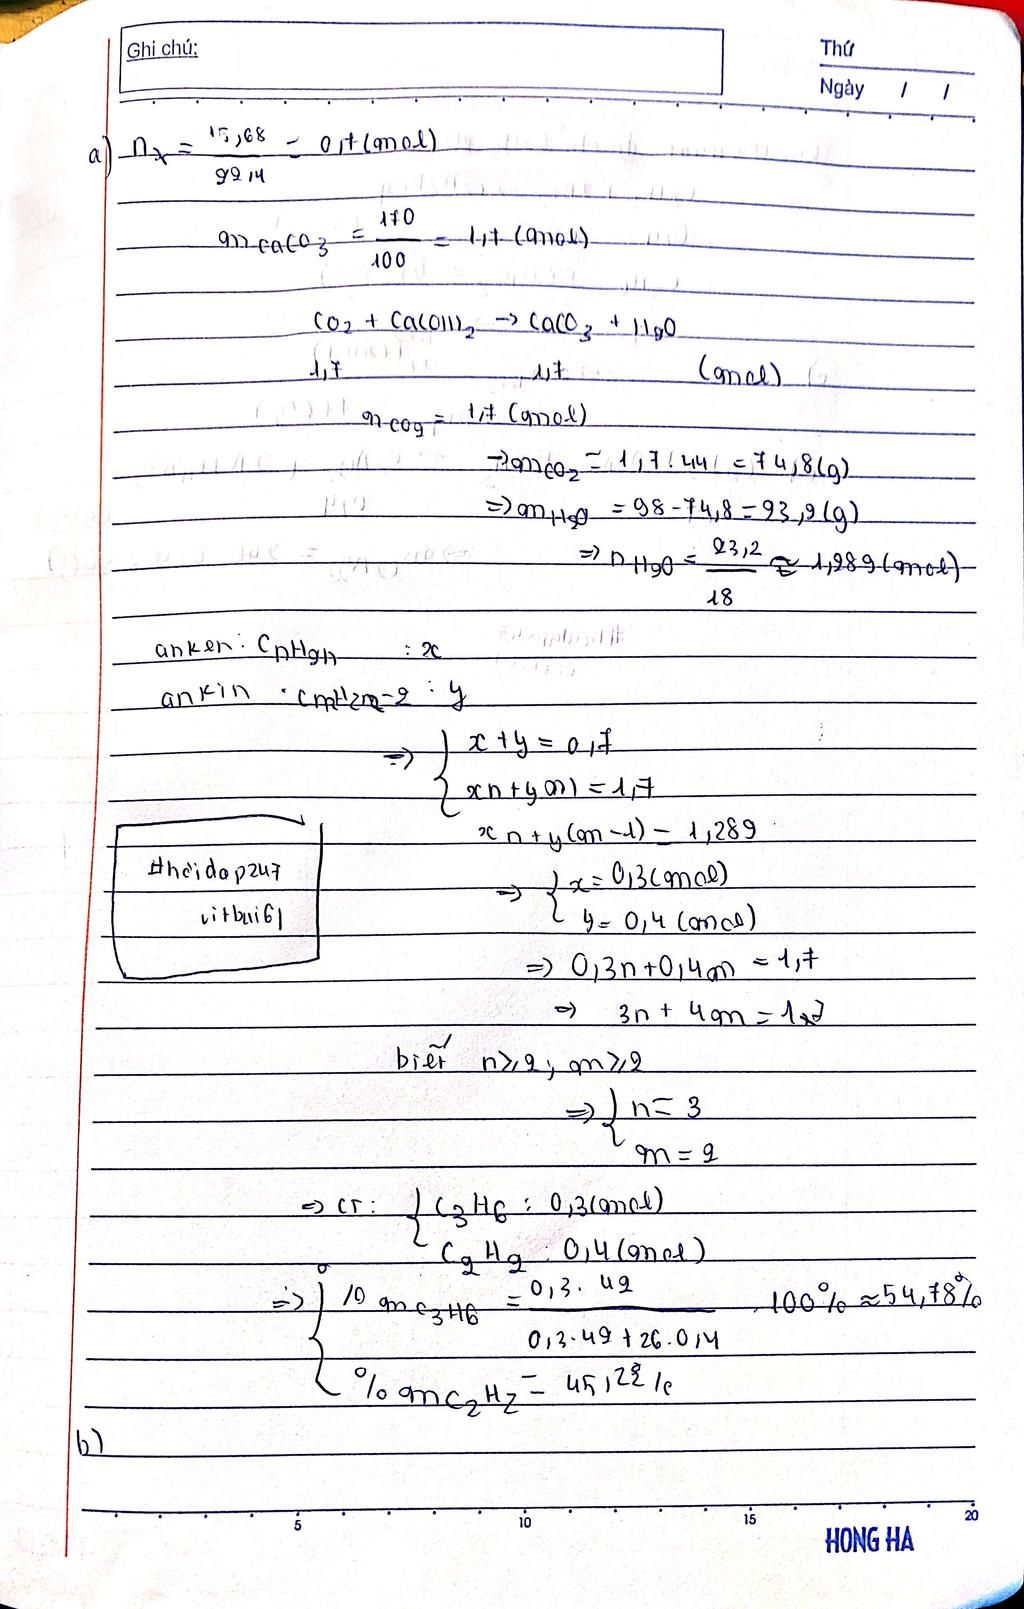 Ghi chú:
Thứ
Ngày / /
a) nx = 15,68 / 22,4 = 0,7 (mol)
nCaCO3 = 170 / 100 = 1,7 (mol)
CO2 + Ca(OH)2 → CaCO3 + H2O
1,7 1,7 (mol)
nCO2 = 1,7 (mol)
→ mCO2 = 1,7.44 = 74,8 (g)
=> mH2O = 98 - 74,8 = 23,2 (g)
=> nH2O = 23,2 / 18 ≈ 1,289 (mol)
anken: CnH2n : x
ankin : CmH2m-2 : y
=> { x + y = 0,7
xn + ym = 1,7
xn + y(m-1) = 1,289
=> { x = 0,3 (mol)
y = 0,4 (mol)
#hoidap247
vitbui61
=> 0,3n + 0,4m = 1,7
=> 3n + 4m = 17
biết n ≥ 2; m ≥ 2
=> { n = 3
m = 2
=> CT: { C3H6 : 0,3 (mol)
C2H2 : 0,4 (mol)
=> { % mC3H6 = 0,3.42 / 0,3.42 + 26.0,4 . 100% ≈ 54,78%
% mC2H2 = 45,22%
b)
5 10 15 20
HONG HA